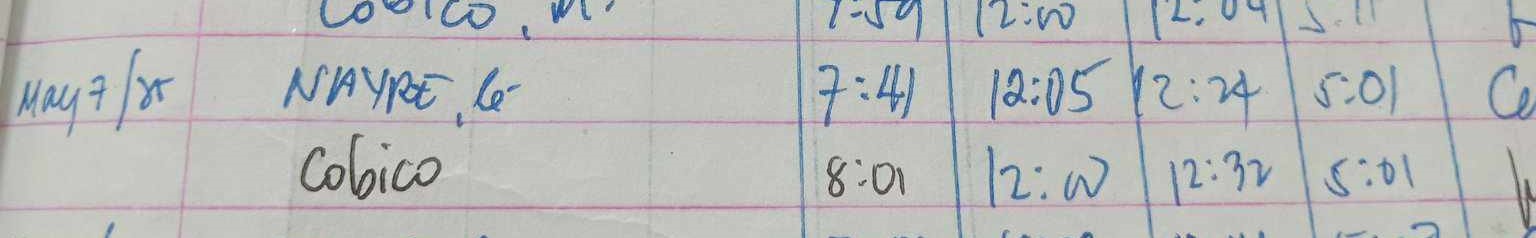 Cobico, M. 7:59 12:00 12:04 5:11
May 7/25 NAYRE, Ce 7:41 12:05 12:24 5:01 Ce
Cobico 8:01 12:00 12:32 5:01